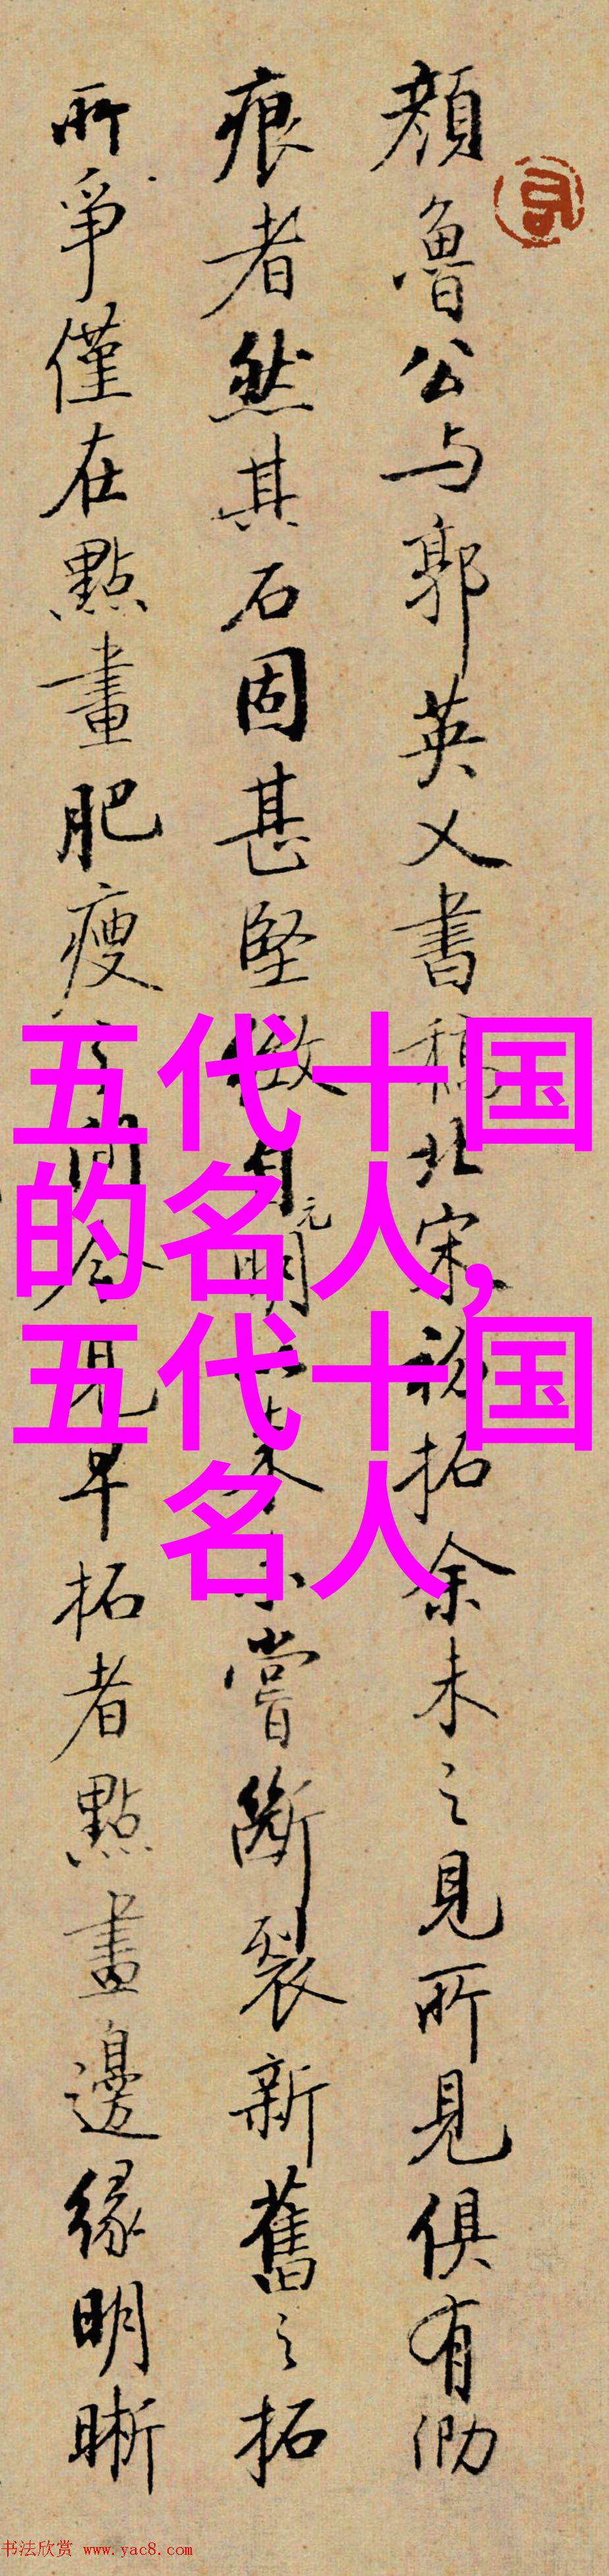 顔魯公与郭英乂書稿北宋初拓余未之見所見俱有泐
痕者然其石固甚堅緻自元明以来亦未嘗斷裂新舊之拓
所爭僅在點畫肥瘦之間今見早拓者點畫邊緣明晰
五代十国
的名人,
五代十国
名人
书法欣赏 www.yac8.com